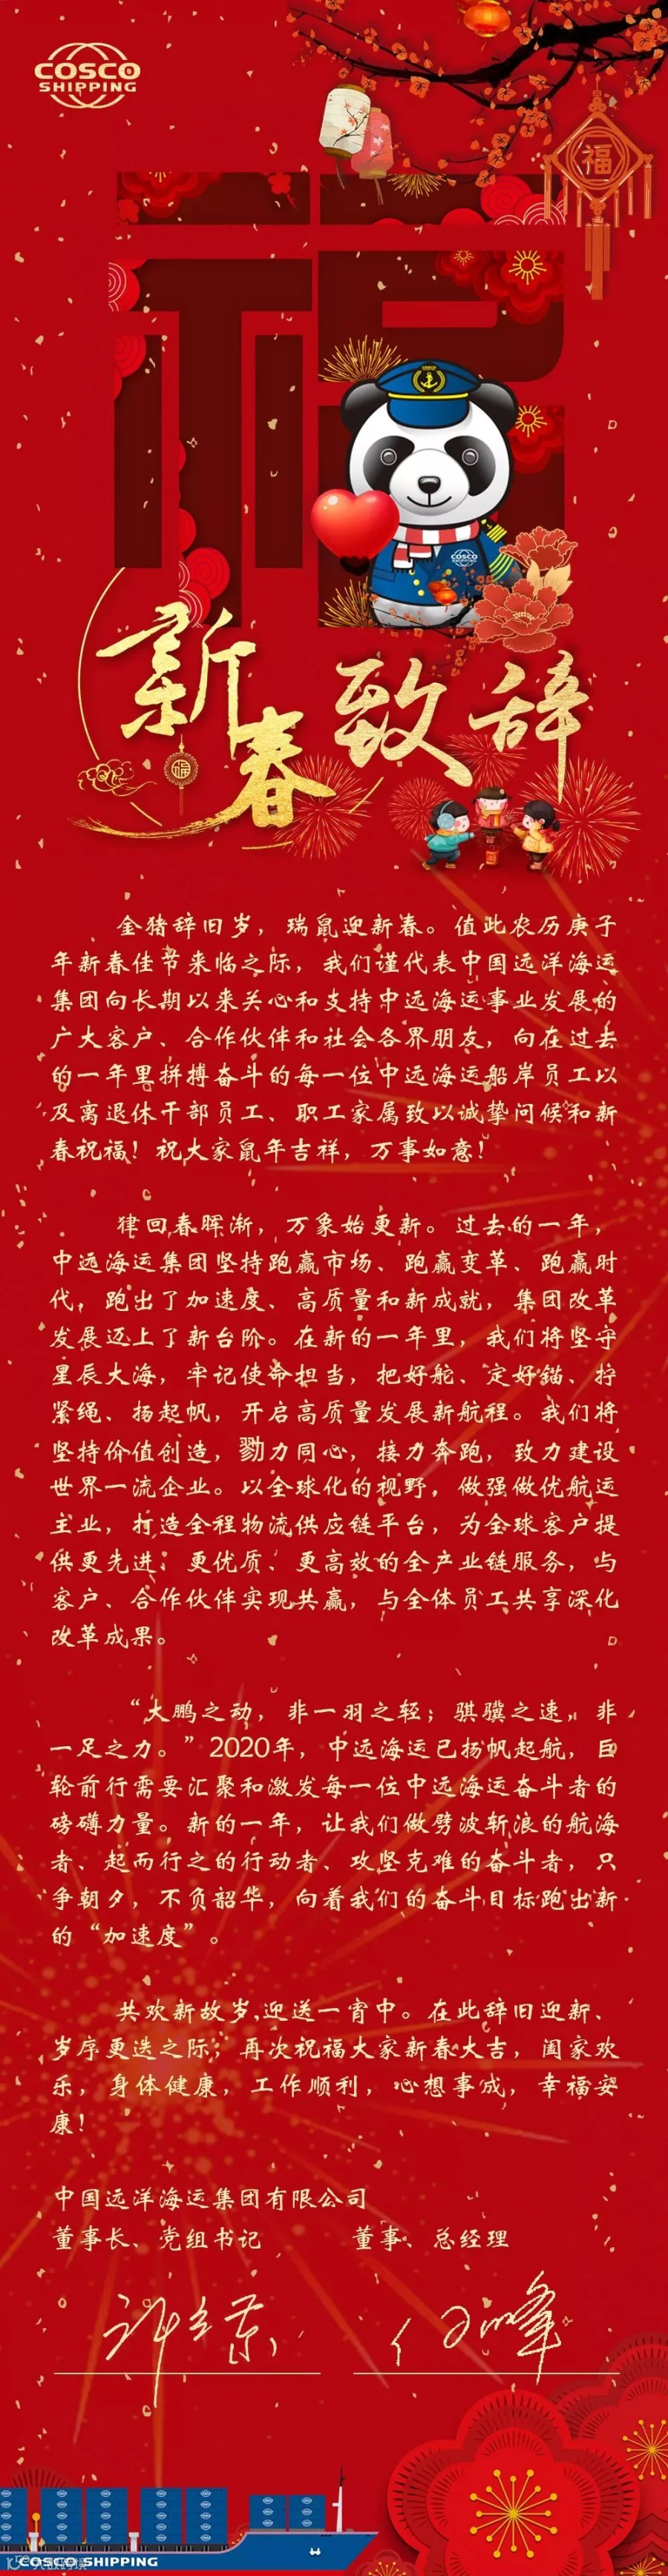 COSCO
SHIPPING
福
福
COSCO
SHIPPING
新春致辞
福
金猪辞旧岁，瑞鼠迎新春。值此农历庚子
年新春佳节来临之际，我们谨代表中国远洋海运
集团向长期以来关心和支持中远海运事业发展的
广大客户、合作伙伴和社会各界朋友，向在过去
的一年里拼搏奋斗的每一位中远海运船岸员工以
及离退休干部员工、职工家属致以诚挚问候和新
春祝福！祝大家鼠年吉祥，万事如意！
律回春晖渐，万象始更新。过去的一年，
中远海运集团坚持跑赢市场、跑赢变革、跑赢时
代，跑出了加速度、高质量和新成就，集团改革
发展迈上了新台阶。在新的一年里，我们将坚守
星辰大海，牢记使命担当，把好舵、定好锚、拧
紧绳、扬起帆，开启高质量发展新航程。我们将
坚持价值创造，勠力同心，接力奔跑，致力建设
世界一流企业。以全球化的视野，做强做优航运
主业，打造全程物流供应链平台，为全球客户提
供更先进、更优质、更高效的全产业链服务，与
客户、合作伙伴实现共赢，与全体员工共享深化
改革成果。
“大鹏之动，非一羽之轻；骐骥之速，非
一足之力。”2020年，中远海运已扬帆起航，巨
轮前行需要汇聚和激发每一位中远海运奋斗者的
磅礴力量。新的一年，让我们做劈波斩浪的航海
者、起而行之的行动者、攻坚克难的奋斗者，只
争朝夕，不负韶华，向着我们的奋斗目标跑出新
的“加速度”。
共欢新故岁,迎送一宵中。在此辞旧迎新、
岁序更迭之际，再次祝福大家新春大吉，阖家欢
乐，身体健康，工作顺利，心想事成，幸福安
康！
中国远洋海运集团有限公司
董事长、党组书记 董事、总经理
COSCO SHIPPING